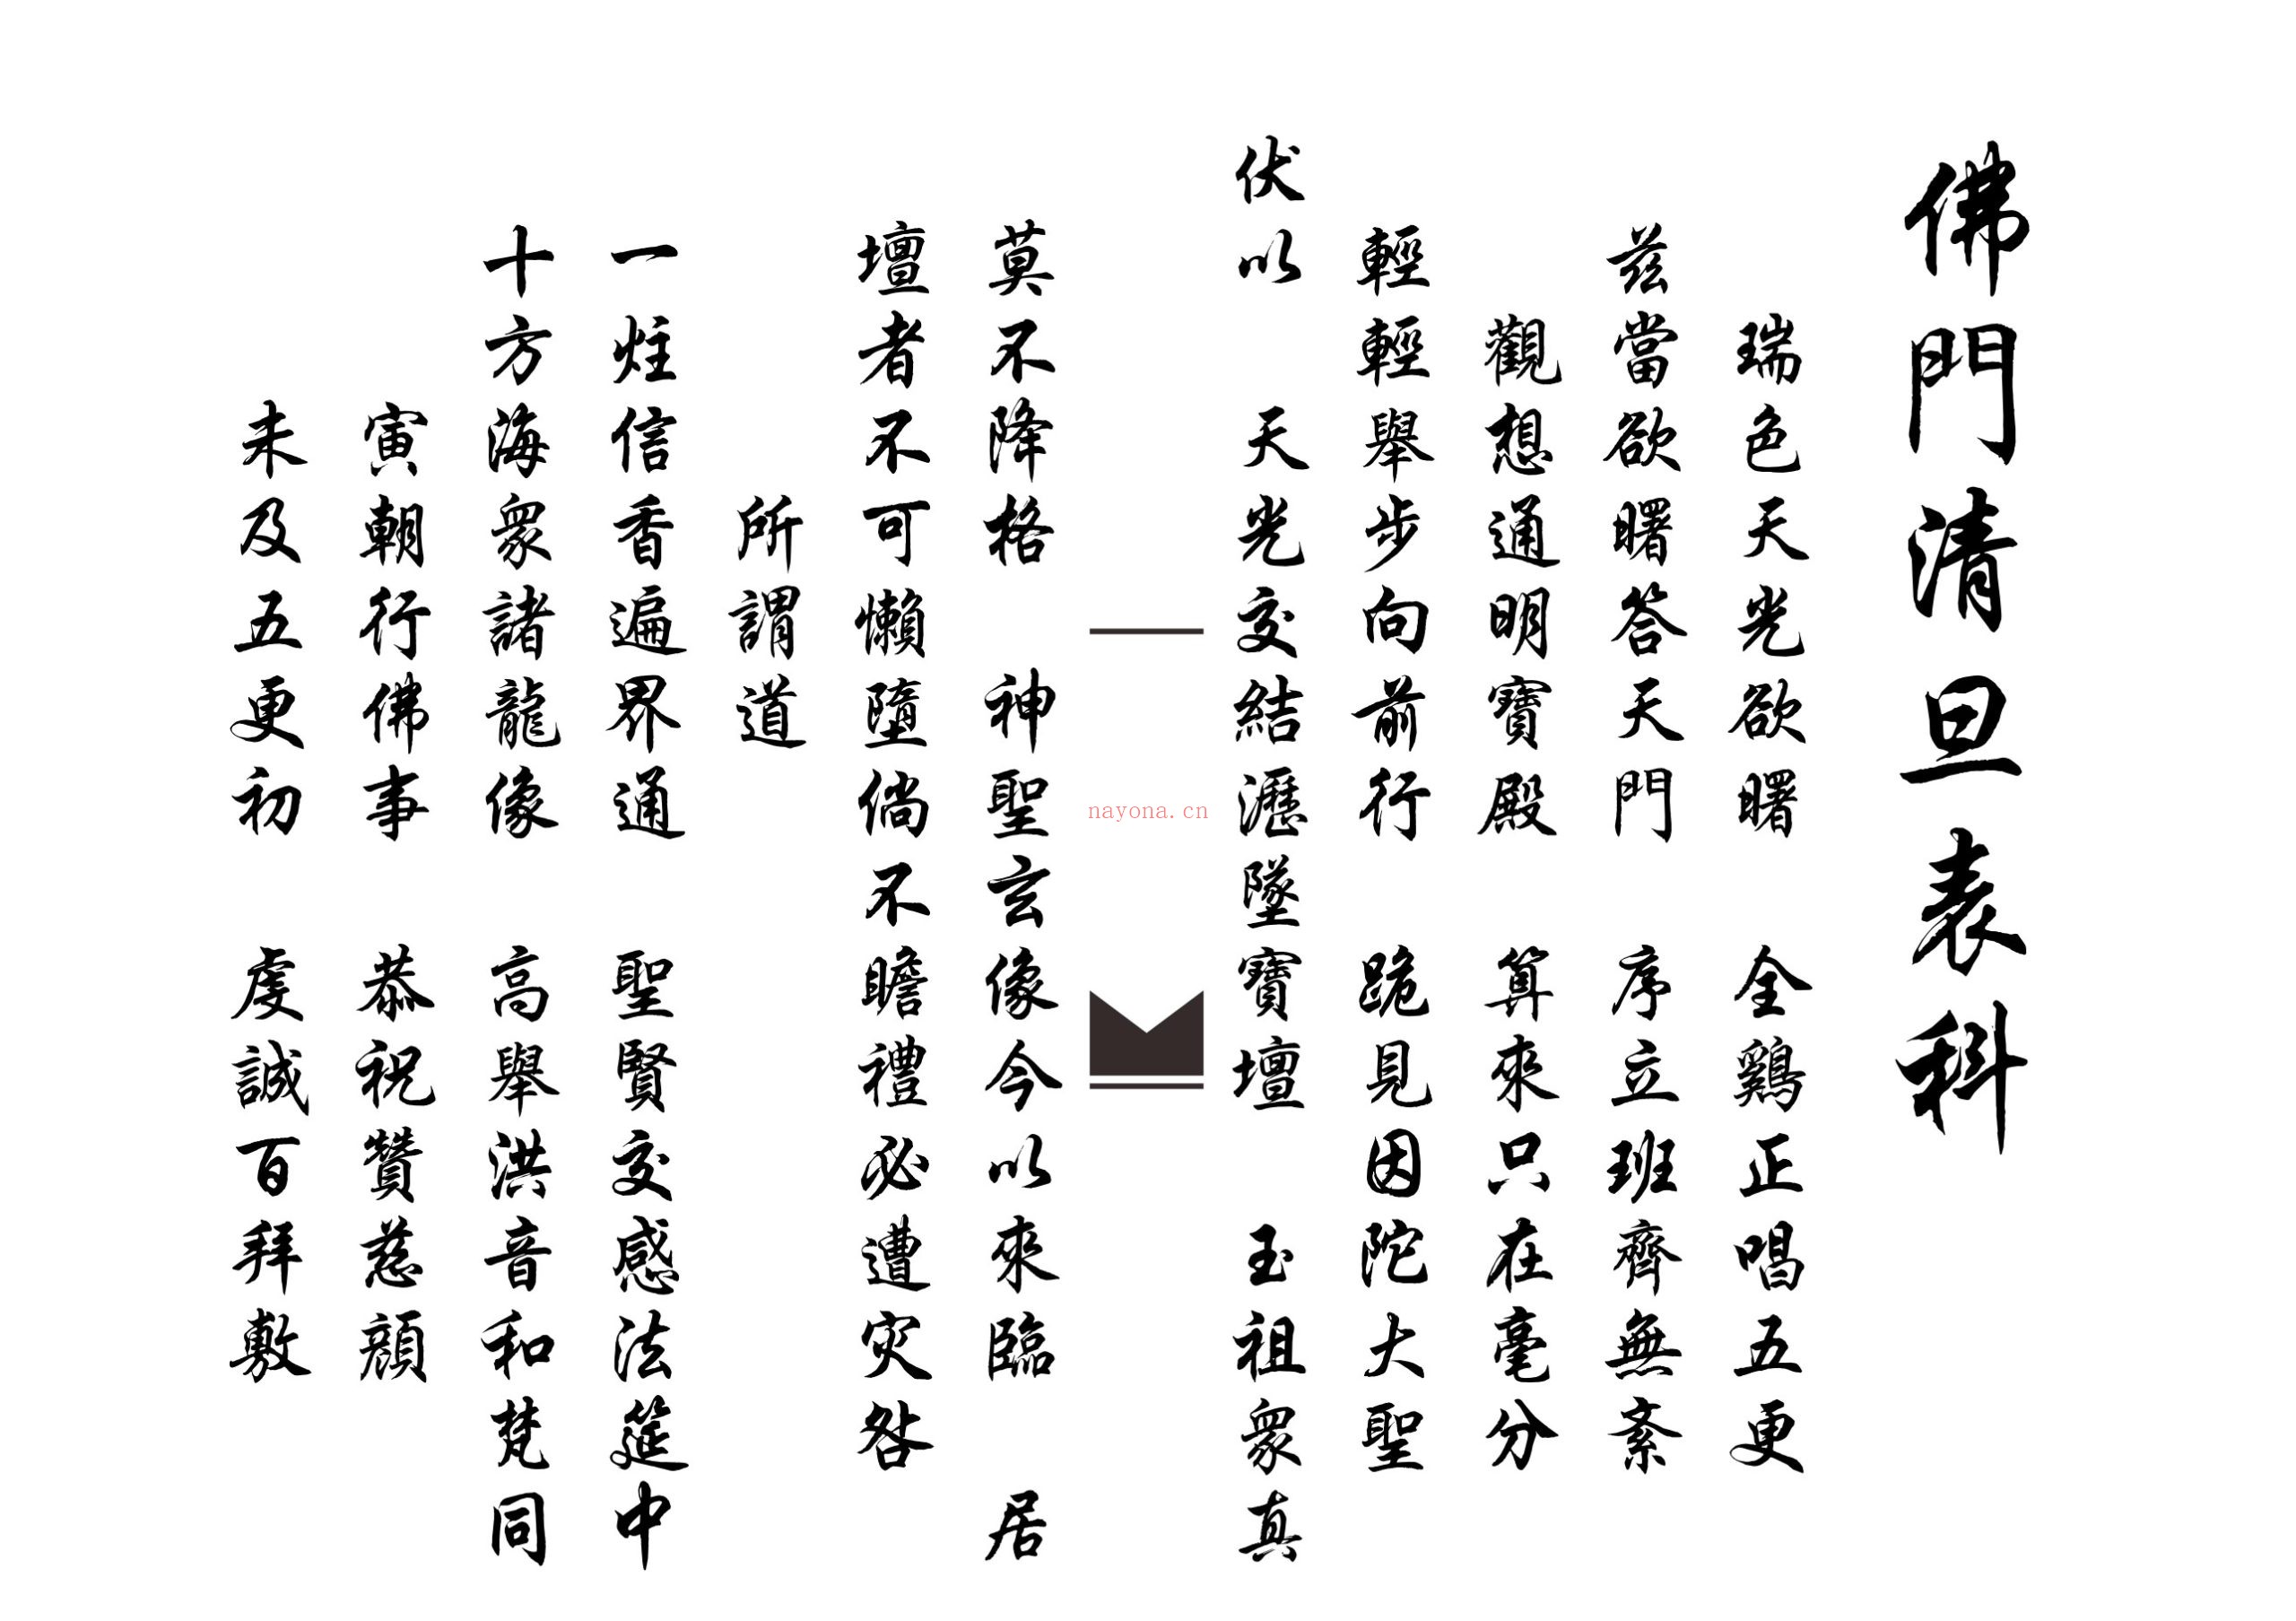 佛門清旦表科
瑞色天光欲曙 全鷄正唱五更
兹當欲曙答天門 序立班齊無紊
觀想通明寶殿 算來只在毫分
輕輕舉步向前行 跪見因陀大聖
伏以 天光交結瀝墜寶壇 玉祖衆真
nayona.cn
莫不降格 神聖玄像今以來臨 居
壇者不可懶墮倘不瞻禮必遭灾咎
所謂道
一炷信香遍界通 聖賢交感法筵中
十方海衆諸龍像 高舉洪音和梵同
寅朝行佛事 恭祝贊慈顔
未及五更初 虔誠百拜敷